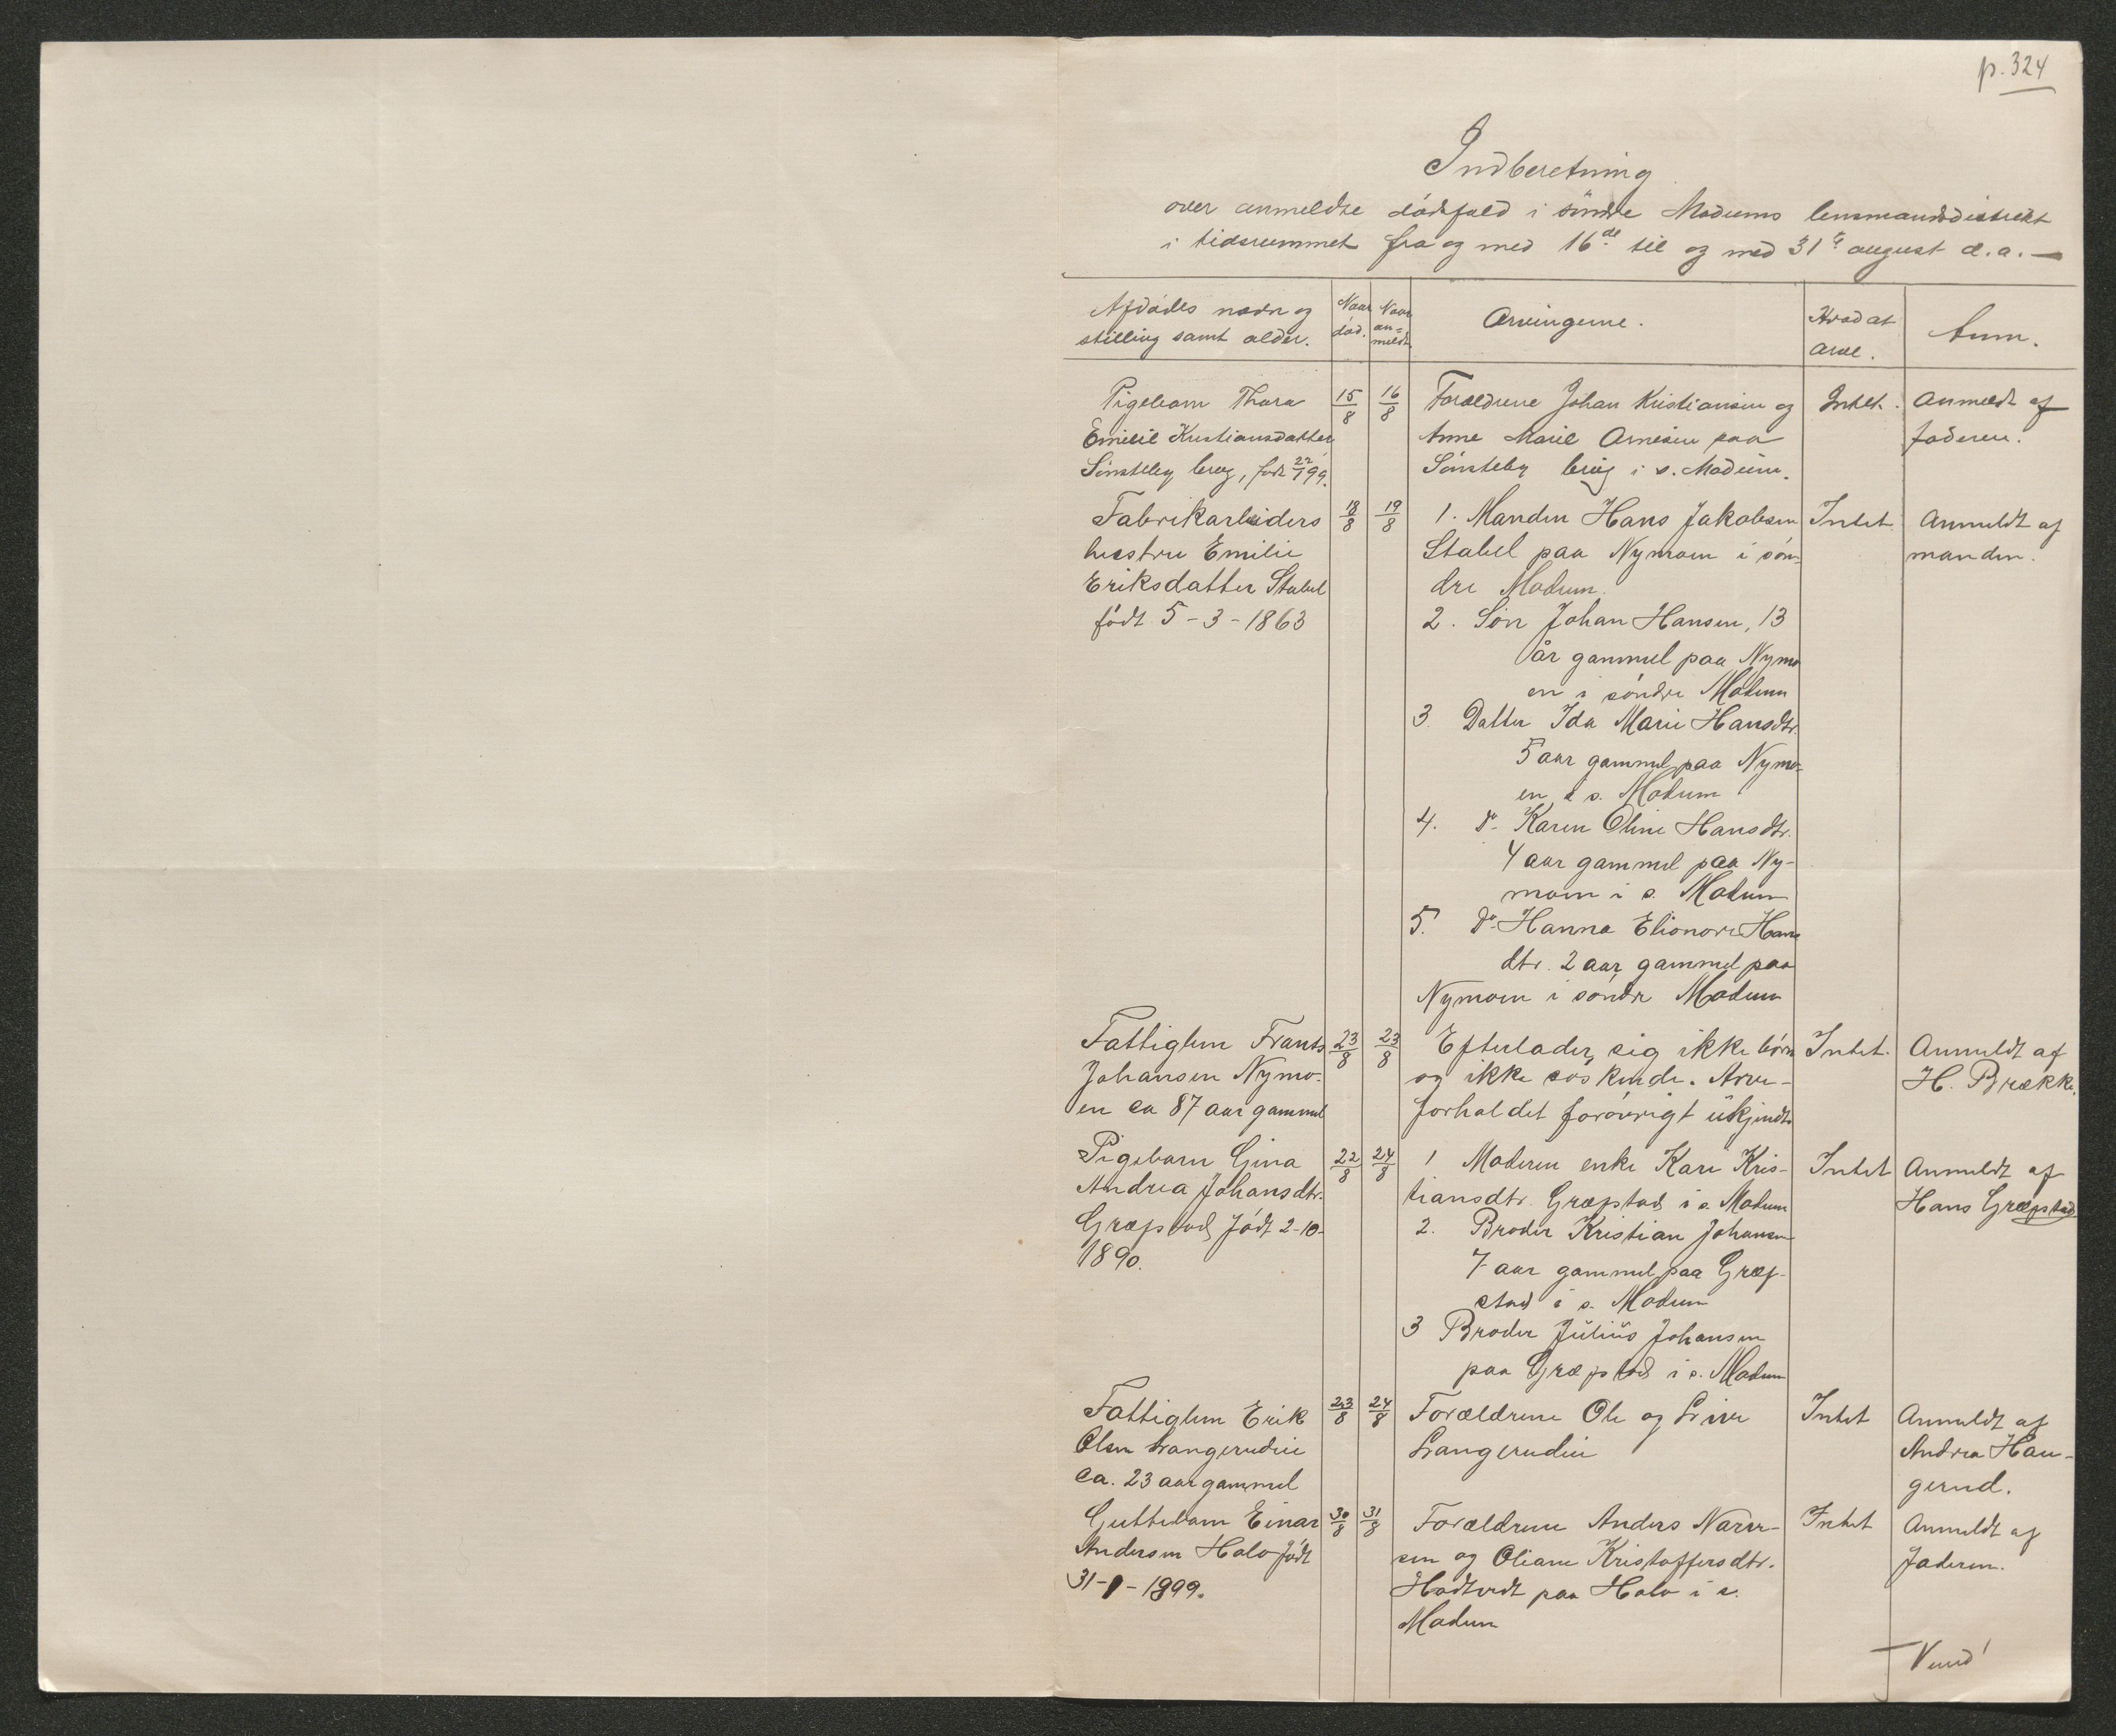 p. 324
Indberetning
over anmeldte dödsfald i söndre Modums lensmandsdistrikt
i tidsrummet fra og med 16de til og med 31te august d.a. —
Afdödes navn og
stilling samt alder.
Naar
död.
Naar
an=
meldt.
Arvingerne.
Hvad at
arve.
Anm.
Pigebarn Thora
Emilie Kristiansdatter
Sönsteby brug, född 22/1 99.
15/8
16/8
Forældrene Johan Kristiansen og
Anne Marie Arnesen paa
Sönsteby brug i s. Modum.
Intet.
Anmeldt af
faderen.
Fabrikarbeiders
hustru Emilie
Eriksdatter Stabel
födt 5-3-1863
18/8
19/8
1. Manden Hans Jakobsen
Stabel paa Nymoen i sön-
dre Modum.
2. Sön Johan Hansen, 13
år gammel paa Nymo
en i söndre Modum
3. Datter Ida Marie Hansdtr.
5 aar gammel paa Nymo-
en i s. Modum
4. do Karen Oline Hansdtr.
4 aar gammel paa Ny-
moen i s. Modum
5. do Hanna Elionore Hans
dtr. 2 aar gammel paa
Nymoen i söndre Modum
Intet
Anmeldt af
manden.
Fattiglem Frants
Johansen Nymo-
en ca 87 aar gammel
23/8
23/8
Efterlader sig ikke börn
og ikke söskende. Arve-
forholdet forövrigt ukjendt
Intet.
Anmeldt af
H. Brække.
Pigebarn Gina
Andrea Johansdtr.
Græpstad födt 2-10-
1890.
22/8
24/8
1 Moderen enke Kari Kris-
tiansdtr. Græpstad i s. Modum
2. Broder Kristian Johansen
7 aar gammel paa Græp-
stad i s. Modum
3 Broder Julius Johansen
paa Græpstad i s. Modum
Intet
Anmeldt af
Hans Græpstad
Fattiglem Erik
Olsen Langerudeie
ca. 23 aar gammel
23/8
24/8
Forældrene Ole og Live
Langerudeie
Intet
Anmeldt af
Andrea Hau-
gerud.
Guttebarn Einar
Andersen Holo födt
31-1-1899.
30/8
31/8
Forældrene Anders Narve-
sen og Oliane Kristoffersdtr.
Hodtvedt paa Holo i s.
Modum
Intet
Anmeldt af
faderen.
Vend!